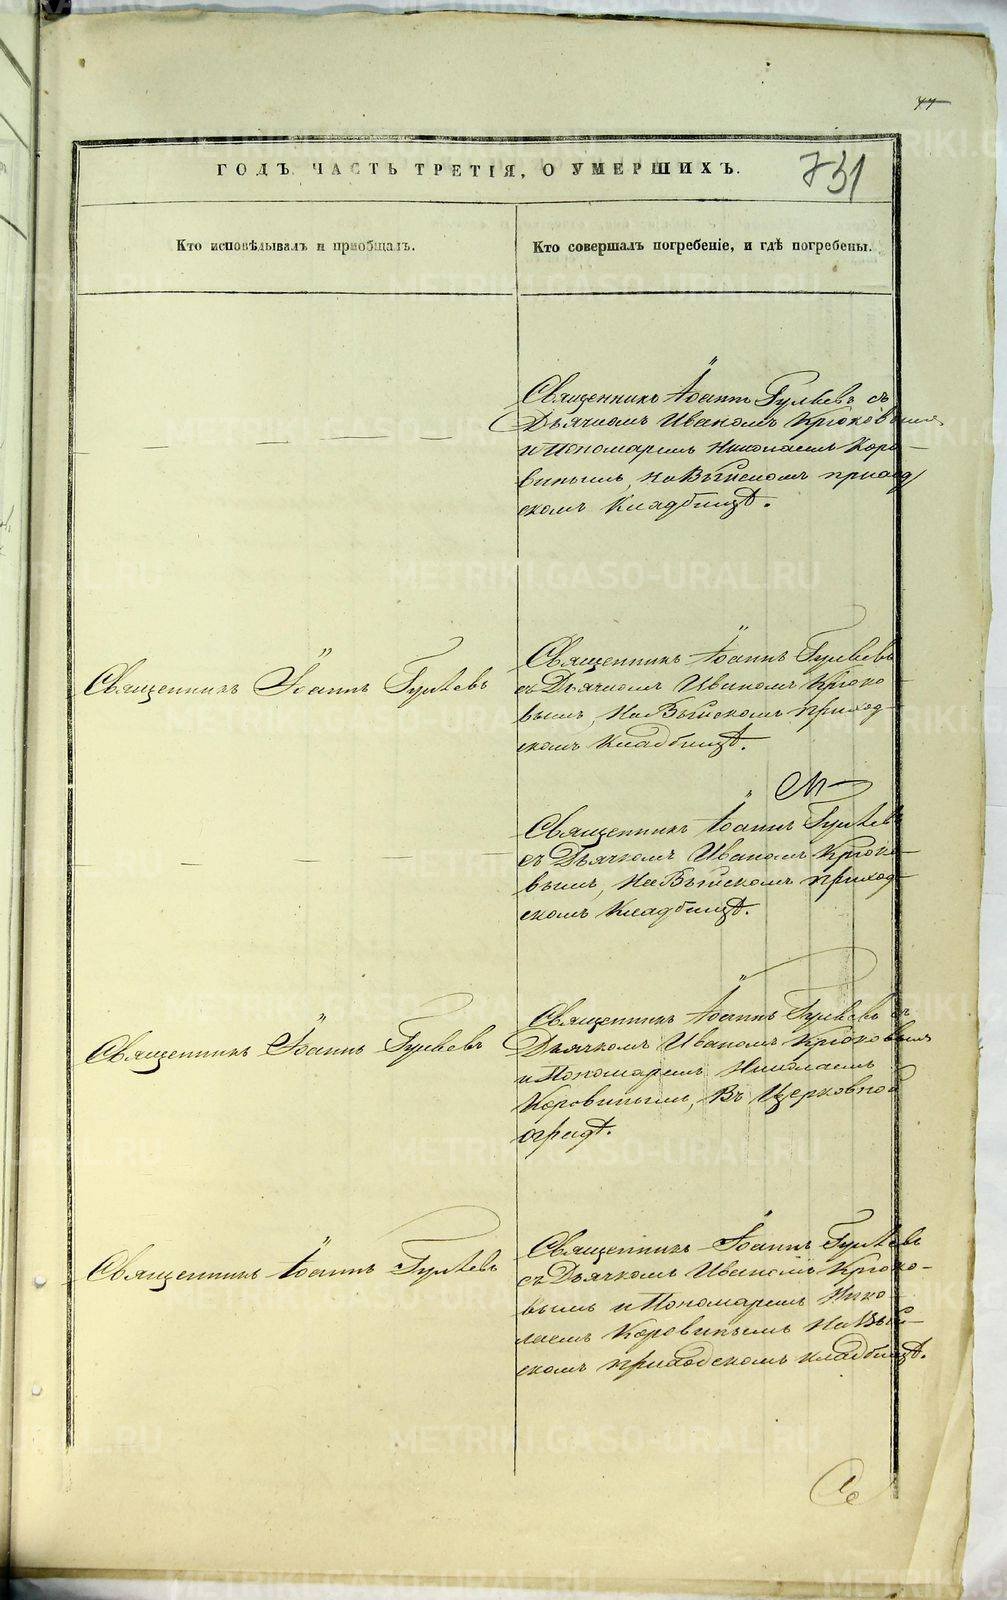 ГОДЪ ЧАСТЬ ТРЕТІЯ, О УМЕРШИХЪ.
731
Кто исповѣдывалъ и пріобщалъ.
Кто совершалъ погребеніе, и гдѣ погребены.
Священникъ Іоаннъ Гуляевъ съ
Дьячкомъ Иваномъ Крюковымъ
и Пономаремъ Николаемъ Коро-
винымъ, на Выйскомъ приход
скомъ Кладбищѣ.
Священникъ Іоаннъ Гуляевъ
Священникъ Іоаннъ Гуляевъ
съ Дьячкомъ Иваномъ Крюко
вымъ, на Выйскомъ приход-
скомъ Кладбищѣ.
Священникъ Іоаннъ Гуляевъ
съ Дьячкомъ Иваномъ Крюко-
вымъ, на Выйскомъ приход-
скомъ Кладбищѣ.
Священникъ Іоаннъ Гуляевъ
Священникъ Іоаннъ Гуляевъ съ
Дьячкомъ Иваномъ Крюковымъ
и Пономаремъ Николаемъ
Коровинымъ, въ Церковной
оградѣ.
Священникъ Іоаннъ Гуляевъ
Священникъ Іоаннъ Гуляевъ
съ Дьячкомъ Иваномъ Крюко-
вымъ и Пономаремъ Нико
лаемъ Коровинымъ на Вый-
скомъ приходскомъ кладбищѣ.
METRIKI.GASO-URAL.RU